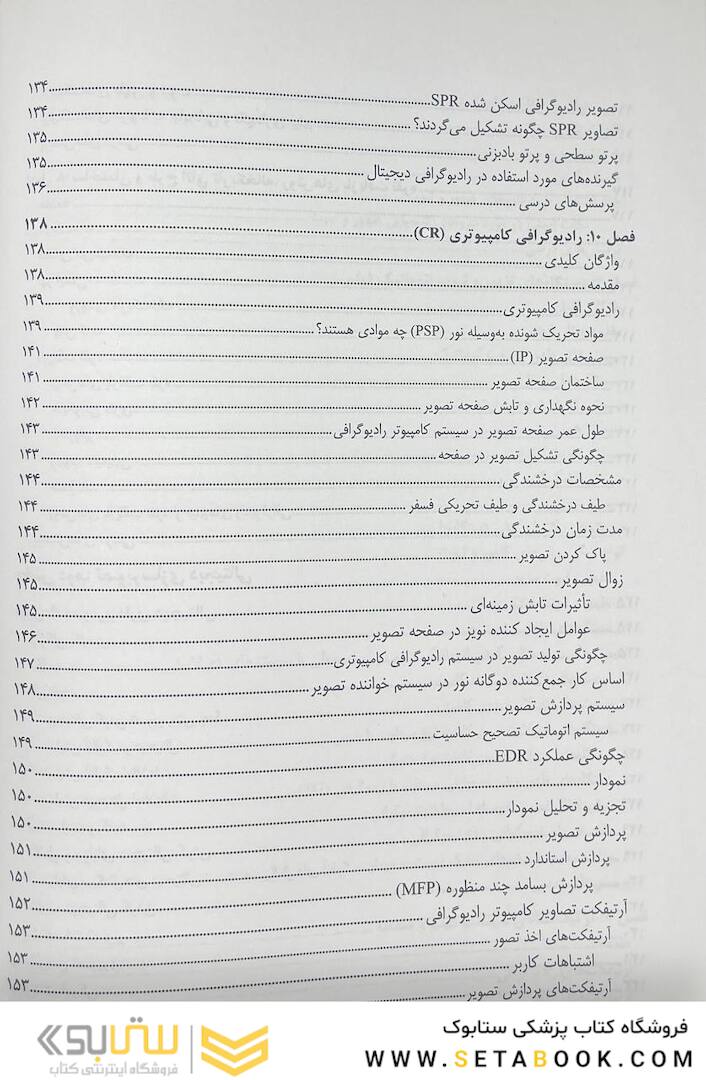 تصویر رادیوگرافی اسکن شده SPR ۱۳۴
تصاویر SPR چگونه تشکیل می‌گردند؟ ۱۳۴
پرتو سطحی و پرتو بادبزنی ۱۳۵
گیرنده‌های مورد استفاده در رادیوگرافی دیجیتال ۱۳۵
پرسش‌های درسی ۱۳۶
فصل ۱۰: رادیوگرافی کامپیوتری (CR) ۱۳۸
واژگان کلیدی ۱۳۸
مقدمه ۱۳۸
رادیوگرافی کامپیوتری ۱۳۹
مواد تحریک شونده به‌وسیله نور (PSP) چه موادی هستند؟ ۱۳۹
صفحه تصویر (IP) ۱۴۱
ساختمان صفحه تصویر ۱۴۱
نحوه نگهداری و تابش صفحه تصویر ۱۴۲
طول عمر صفحه تصویر در سیستم کامپیوتر رادیوگرافی ۱۴۳
چگونگی تشکیل تصویر در صفحه ۱۴۳
مشخصات درخشندگی ۱۴۴
طیف درخشندگی و طیف تحریکی فسفر ۱۴۴
مدت زمان درخشندگی ۱۴۴
پاک کردن تصویر ۱۴۵
زوال تصویر ۱۴۵
تأثیرات تابش زمینه‌ای ۱۴۵
عوامل ایجاد کننده نویز در صفحه تصویر ۱۴۶
چگونگی تولید تصویر در سیستم رادیوگرافی کامپیوتری ۱۴۷
اساس کار جمع‌کننده دوگانه نور در سیستم خواننده تصویر ۱۴۸
سیستم پردازش تصویر ۱۴۹
سیستم اتوماتیک تصحیح حساسیت ۱۴۹
چگونگی عملکرد EDR ۱۵۰
نمودار ۱۵۰
تجزیه و تحلیل نمودار ۱۵۰
پردازش تصویر ۱۵۱
پردازش استاندارد ۱۵۱
پردازش بسامد چند منظوره (MFP) ۱۵۲
آرتیفکت تصاویر کامپیوتر رادیوگرافی ۱۵۳
آرتیفکت‌های اخذ تصور ۱۵۳
اشتباهات کاربر ۱۵۳
آرتیفکت‌های پردازش تصویر
فروشگاه کتاب پزشکی ستابوک
WWW.SETABOOK.COM
ستابوک
فروشگاه اینترنتی کتاب